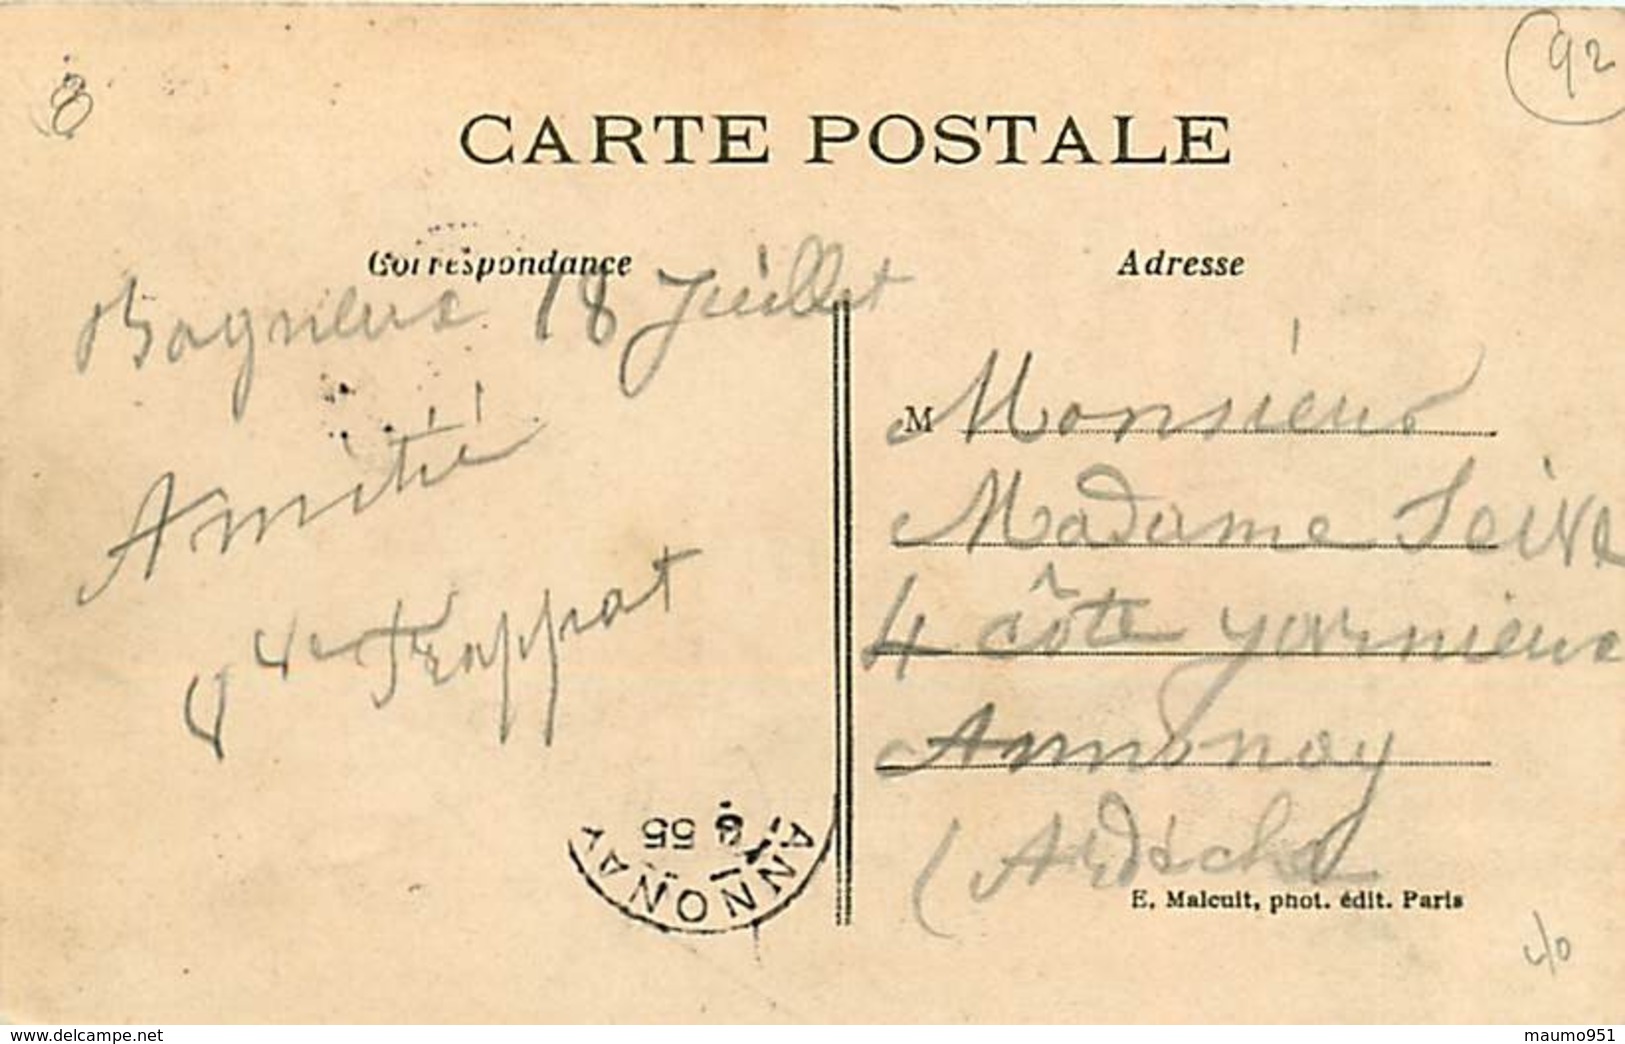 92
8
CARTE POSTALE
Correspondance
Adresse
Bagneux 18 Juillet
Amitié
M Monsieur
Madame Seive
4 côte yarnieux
Annonay
(Ardèche
ANNONAY
55
E. Malcuit, phot. édit. Paris
www.delcampe.net
maumo951